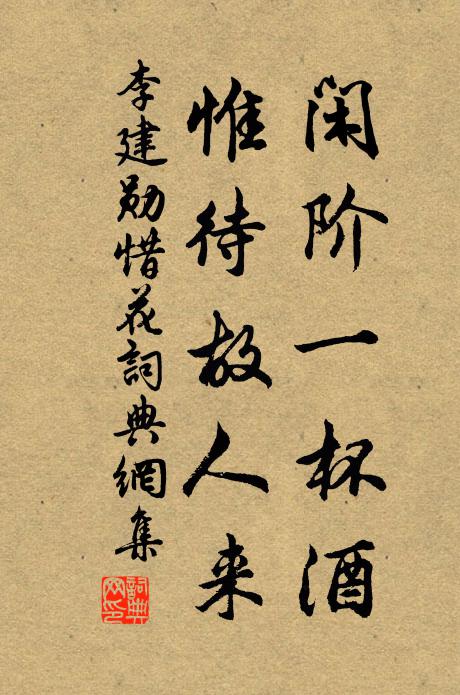 闲阶一杯酒
惟待故人来
李建勋惜花詞典網集
詞典网印